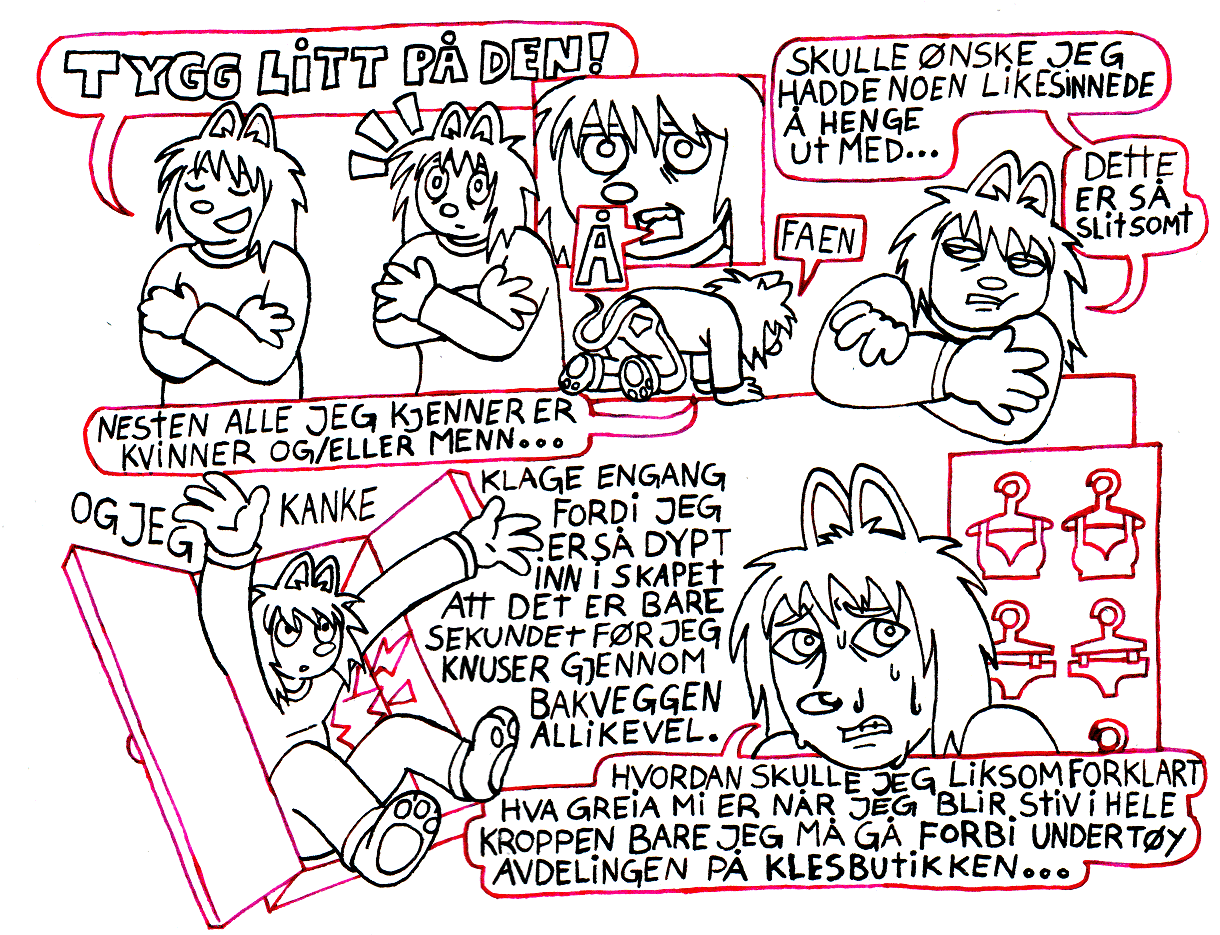 TYGG LITT PÅ DEN!
Å
FAEN
SKULLE ØNSKE JEG
HADDE NOEN LIKESINNEDE
Å HENGE
UT MED...
DETTE
ER SÅ
SLITSOMT
NESTEN ALLE JEG KJENNER ER
KVINNER OG/ELLER MENN...
OG JEG KANKE
KLAGE ENGANG
FORDI JEG
ER SÅ DYPT
INN I SKAPET
ATT DET ER BARE
SEKUNDET FØR JEG
KNUSER GJENNOM
BAKVEGGEN
ALLIKEVEL.
HVORDAN SKULLE JEG LIKSOM FORKLART
HVA GREIA MI ER NÅR JEG BLIR STIV I HELE
KROPPEN BARE JEG MÅ GÅ FORBI UNDERTØY
AVDELINGEN PÅ KLESBUTIKKEN...